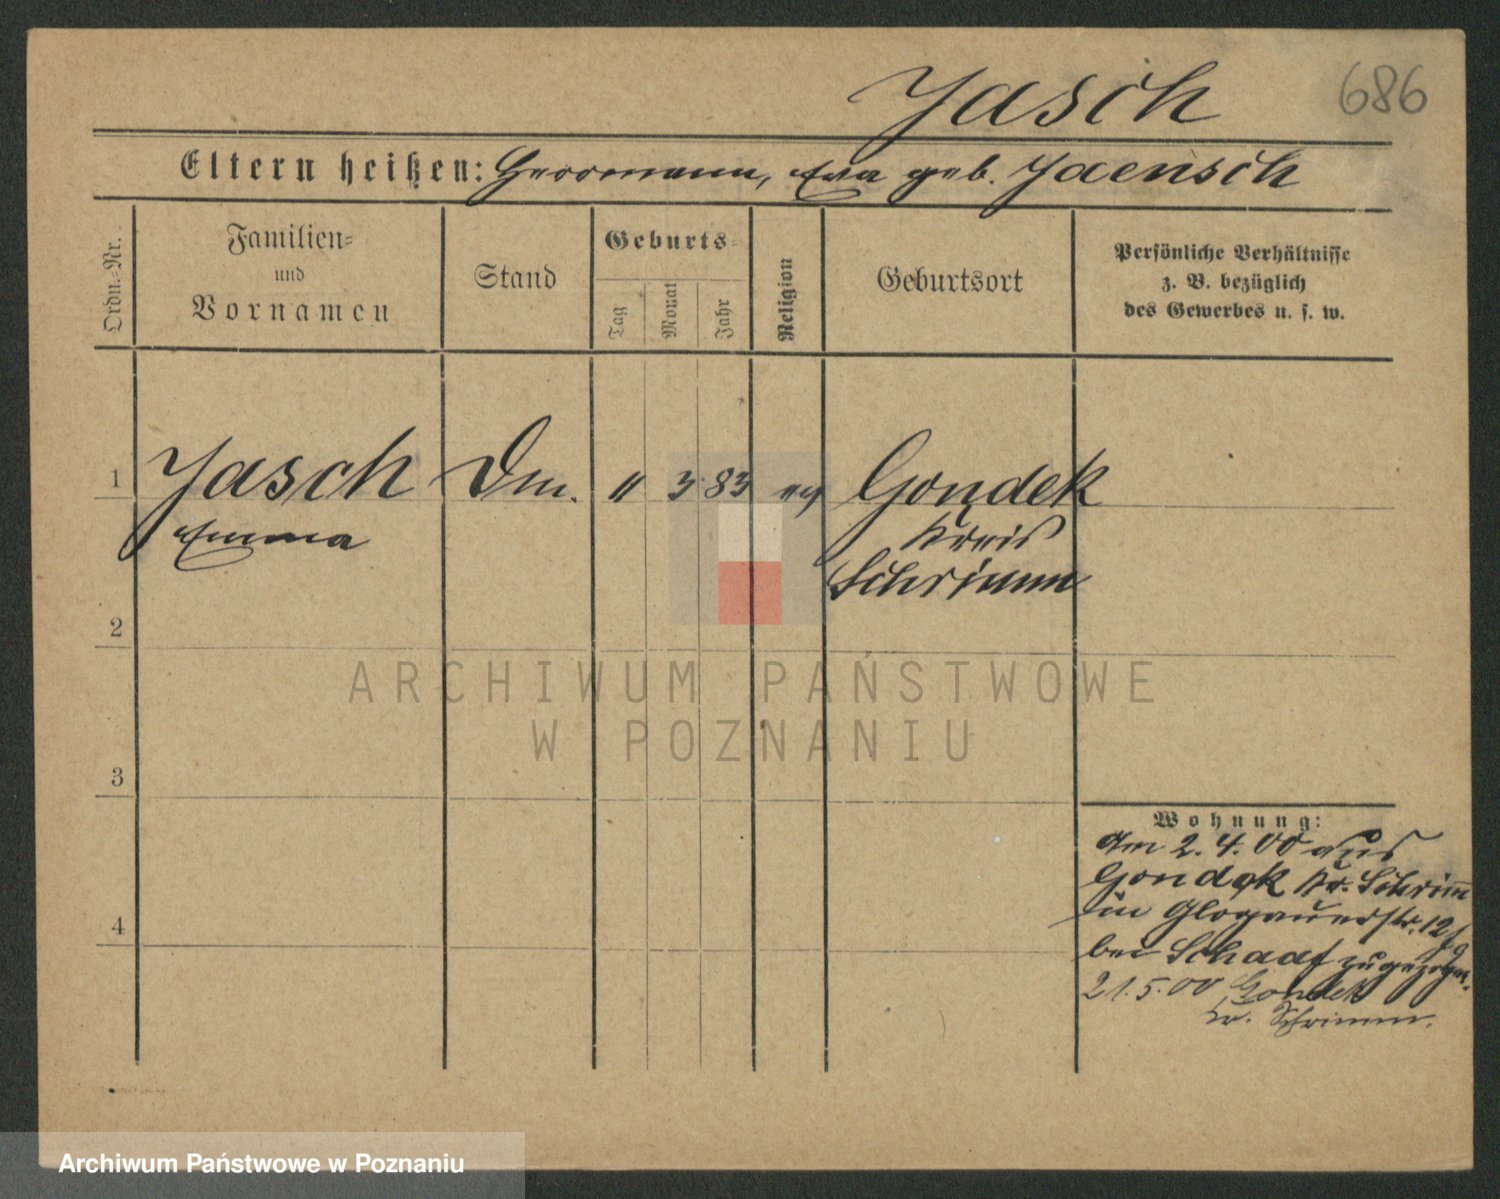 Jasch
686
Eltern heißen: Herrmann, Eva geb. Jaensch
Ordn.=Nr.
Familien=
und
Vornamen
Stand
Geburts=
Tag
Monat
Jahr
Religion
Geburtsort
Persönliche Verhältnisse
z. B. bezüglich
des Gewerbes u. s. w.
1
Jasch
Emma
Dm.
11
3
83
ev
Gondek
Kreis
Schrimm
2
ARCHIWUM PAŃSTWOWE
W POZNANIU
3
4
Wohnung:
Am 2.4.00 aus
Gondek Kr. Schrim̅
in Glogauerstr. 12
bei Schaaf zugezogen.
21.5.00 Gondek
Kr. Schrimm.
Archiwum Państwowe w Poznaniu